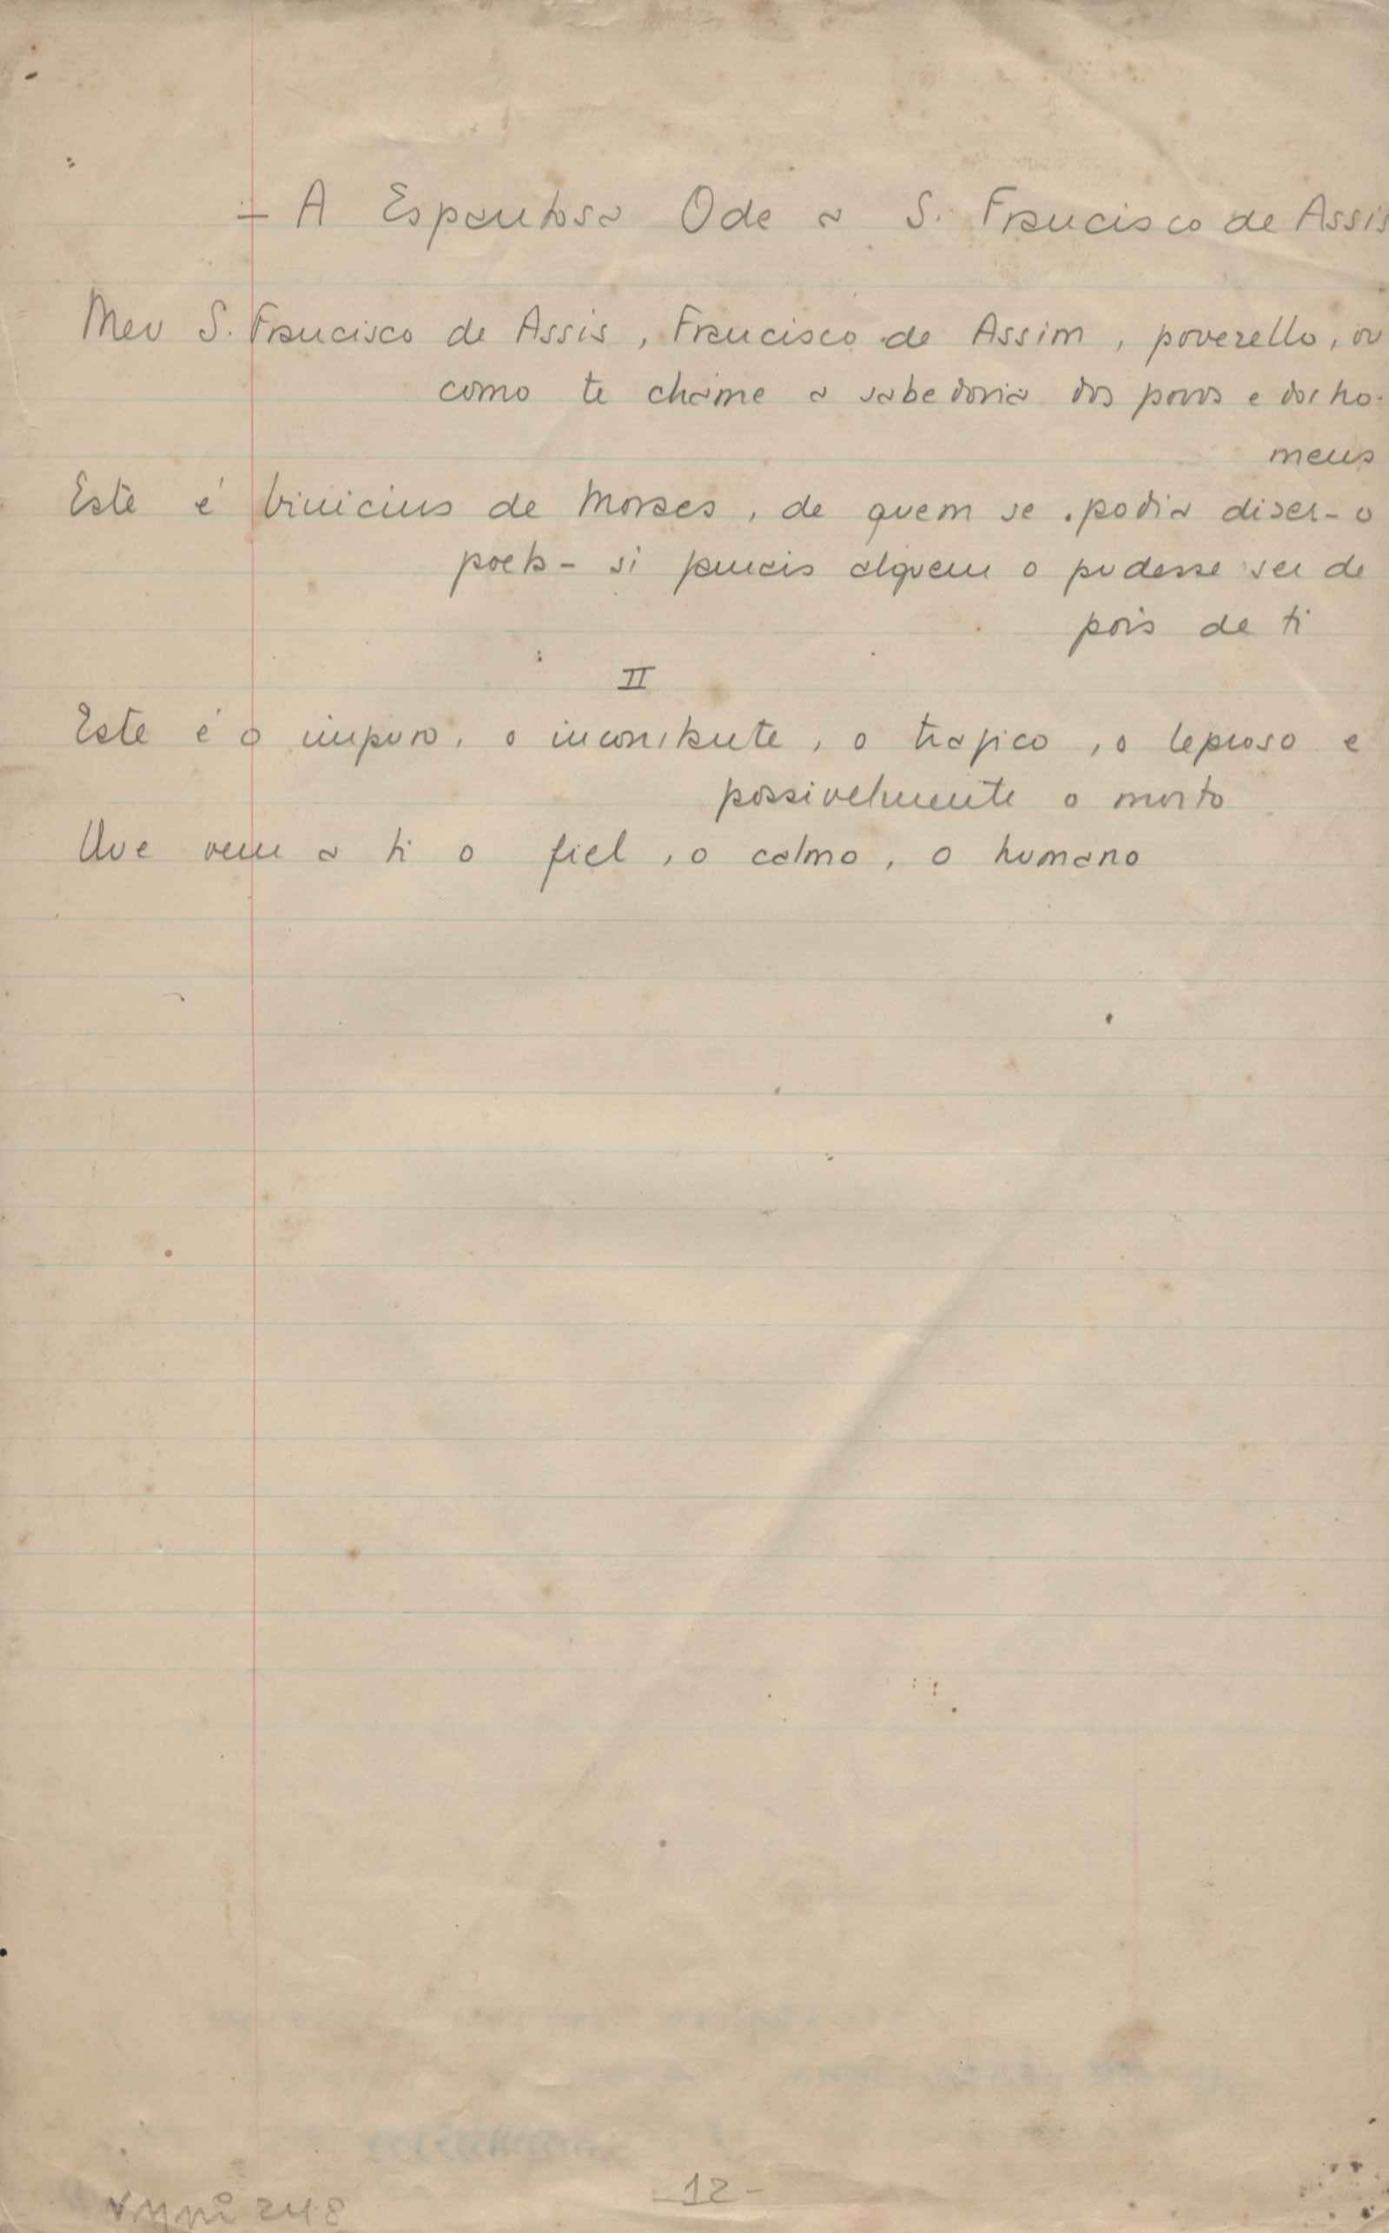 - A Espantosa Ode a S. Francisco de Assis
Meu S. Francisco de Assis, Francisco de Assim, poverello, ou
como te chame a sabedoria dos povos e dos ho-
mens
Este é Vinicius de Moraes, de quem se podia dizer - o
poeta - si jamais alguem o pudesse ser de
pois de ti
II
Este é o impuro, o inconstante, o trágico, o leproso e
possivelmente o morto
Que vem a ti o fiel, o calmo, o humano
12 -
248